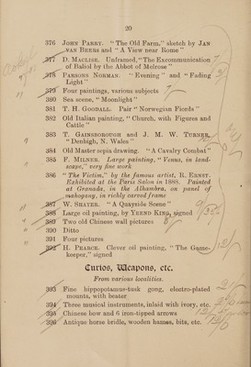 20
376 John Parry. "The Old Farm," sketch by Jan
van Beers and "A View near Rome"
377 D. Maclise. Unframed, "The Excommunication
of Baliol by the Abbot of Melrose"
378 Parsons Norman. "Evening" and "Fading
Light"
379 Four paintings, various subjects
380 Sea scene, "Moonlight"
381 T. H. Goodall. Pair "Norwegian Fiords"
382 Old Italian painting, "Church, with Figures and
Cattle"
383 T. Gainsborough and J. M. W. Turner,
"Denbigh, N. Wales"
384 Old Master sepia drawing. "A Cavalry Combat"
385 F. Milner. Large painting, "Venus, in land-
scape," very fine work
386 "The Victim," by the famous artist, R. Ernst.
Exhibited at the Paris Salon in 1888. Painted
at Granada, in the Alhambra, on panel of
mahogany, in richly carved frame
387 W. Shayer. "A Quayside Scene"
388 Large oil painting, by Yeend King, signed
389 Two old Chinese wall pictures
390 Ditto
391 Four pictures
392 H. Pearce. Clever oil painting, "The Game-
keeper," signed
Curios, Weapons, etc.
From various localities.
393 Fine hippopotamus-tusk gong, electro-plated
mounts, with beater
394 Three musical instruments, inlaid with ivory, etc.
395 Chinese bow and 6 iron-tipped arrows
396 Antique horse bridle, wooden hames, bits, etc.